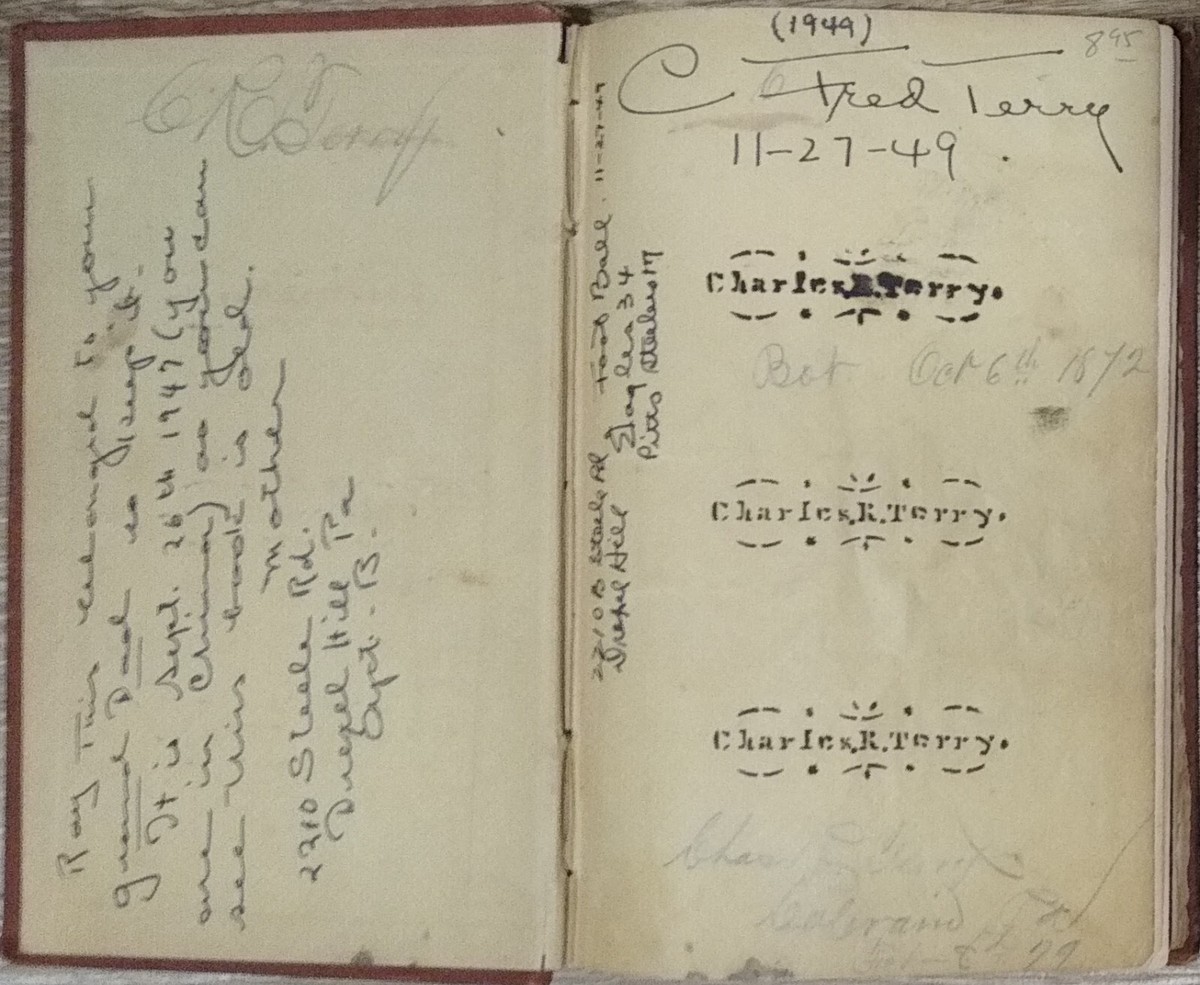 C R Terry
Ray This belonged to your
grand Dad so keep it.
It is Sept. 26 th 1947 (you
are in China) as you can
see this book is old.
Mother
2210 Steele Rd.
Drexel Hill Pa
Apt. B.
(1949)
895
C Fred Terry
11-27-49
2210 B Steele Rd Foot Ball. 11-27-49
Drexel Hill Eagles 34
Pitts Steelers 17
Charles.R.Terry.
Bot. Oct 6th 1872
Charles.R.Terry.
Charles.R.Terry.
Chas Terry
Colerain